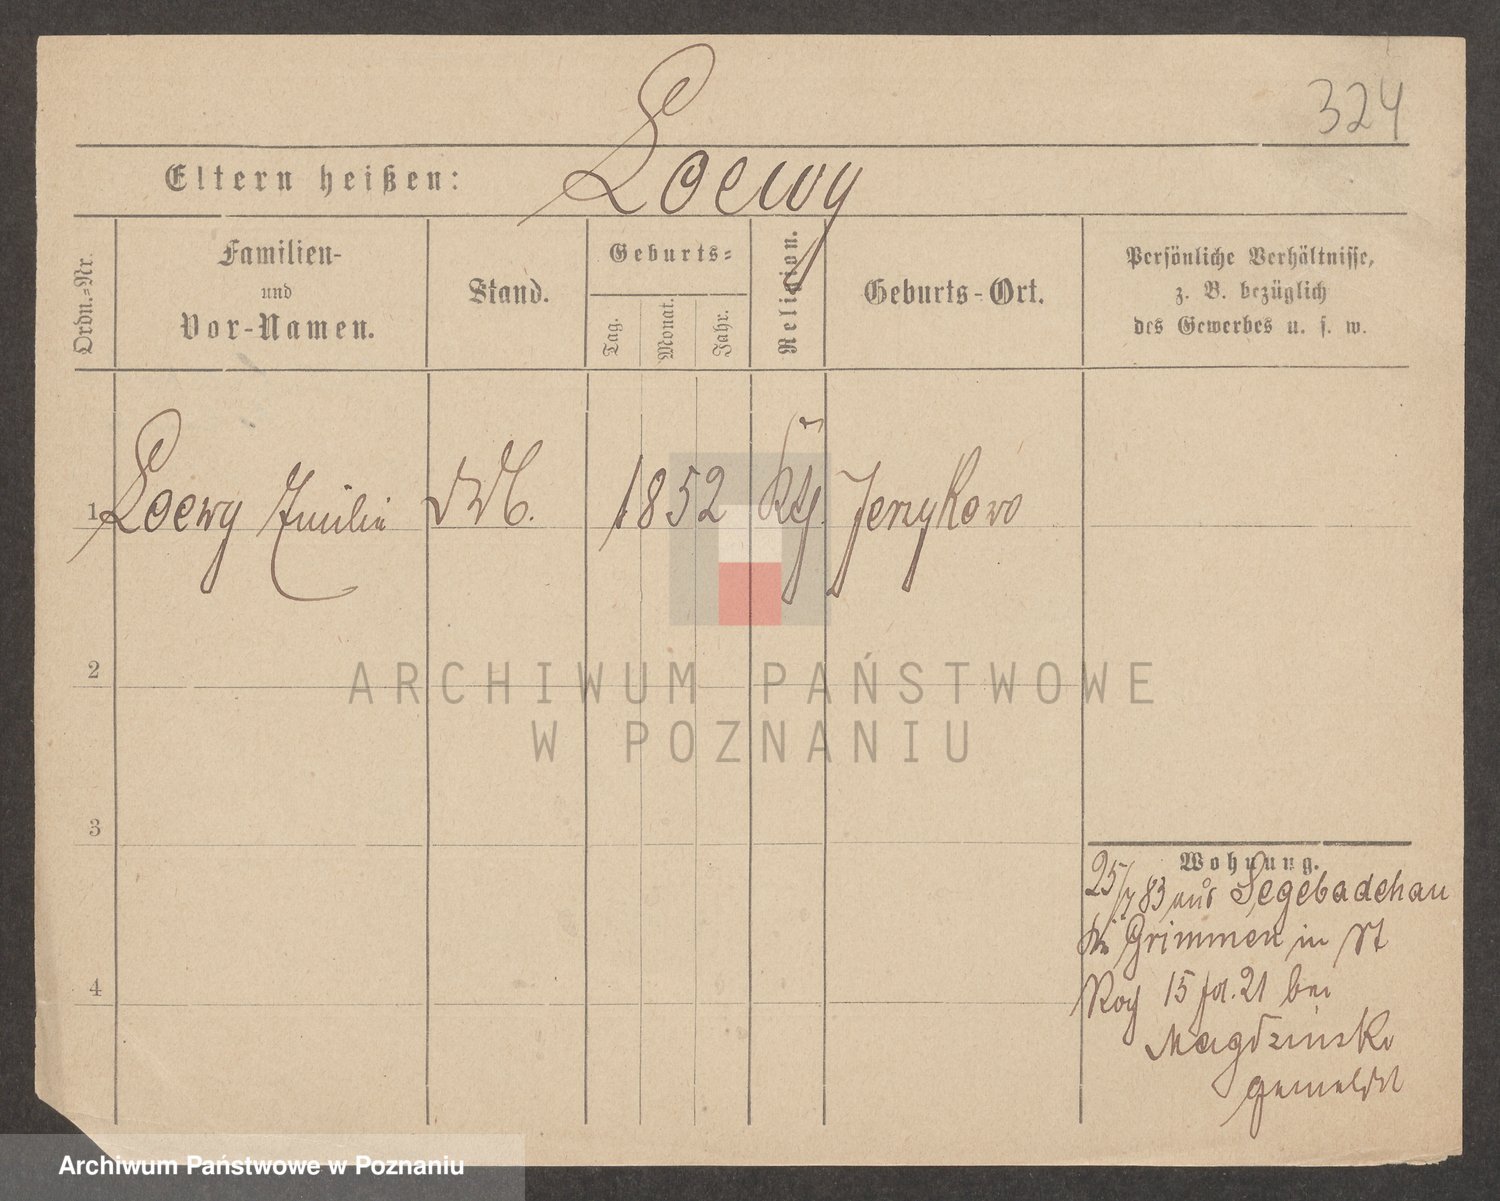 324
Loewy
Eltern heißen:
Ordn.=Nr.
Familien-
und
Vor-Namen.
Stand.
Geburts=
Tag.
Monat.
Jahr.
Religion.
Geburts-Ort.
Persönliche Verhältnisse,
z. B. bezüglich
des Gewerbes u. s. w.
1 Loewy Emilie 1852 Jerzykowo
2
3
4
Wohnung.
25/7 83 aus Segebadehau
Grimmen in St
15 fd. 21 bei
Magdzinska
gemeldet
ARCHIWUM PAŃSTWOWE
W POZNANIU
Archiwum Państwowe w Poznaniu